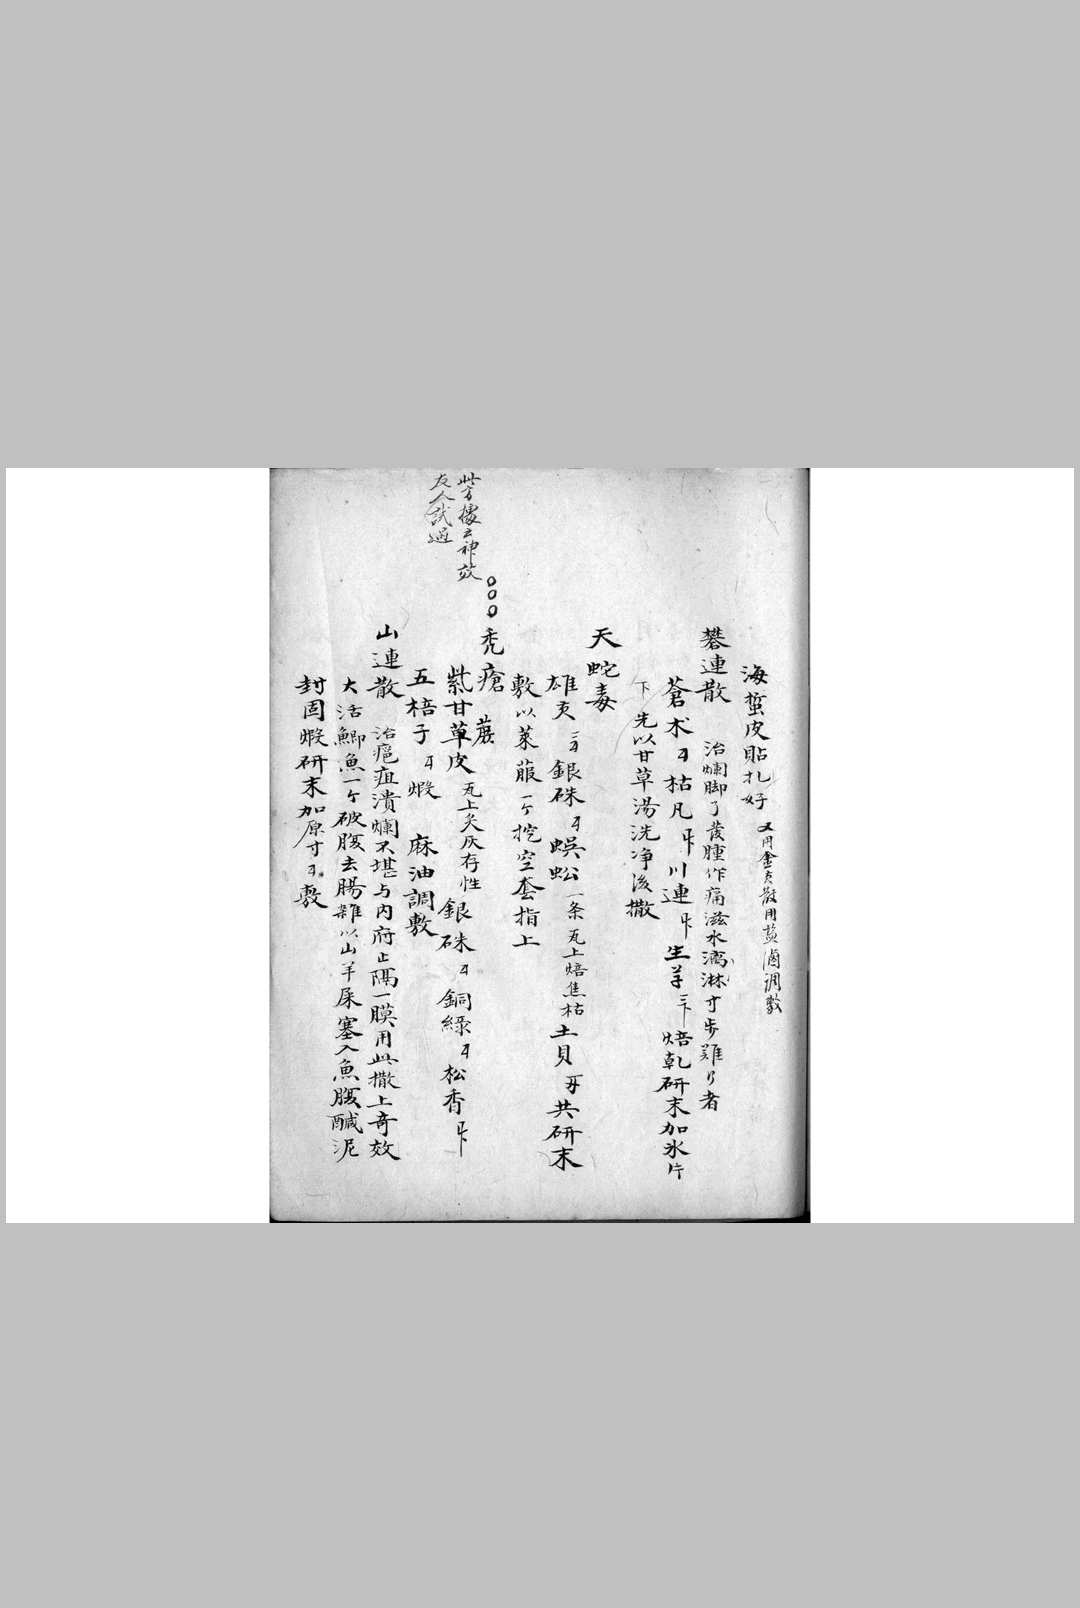 海蜇皮貼扎好 又用金黃散用鹽滷調敷
礬連散 治爛脚了發腫作痛滋水漓淋寸步難行者
蒼朮 枯凡 川連 生 焙乾研末加冰片
下 先以甘草湯洗淨後撒
天蛇毒
雄黃 銀硃 蜈蚣一条瓦上焙焦枯土貝 共研末
敷以萊菔一个挖空套指上
禿瘡
此方據云神效
友人試過
紫甘草皮瓦上炙灰存性銀硃 銅綠 松香
五棓子 煅 麻油調敷
山連散 治疤疽潰爛不堪与內府止隔一膜用此撒上奇效
大活鯽魚一个破腹去腸雜以山羊屎塞入魚腹醎泥
封固煅研末加原寸 敷